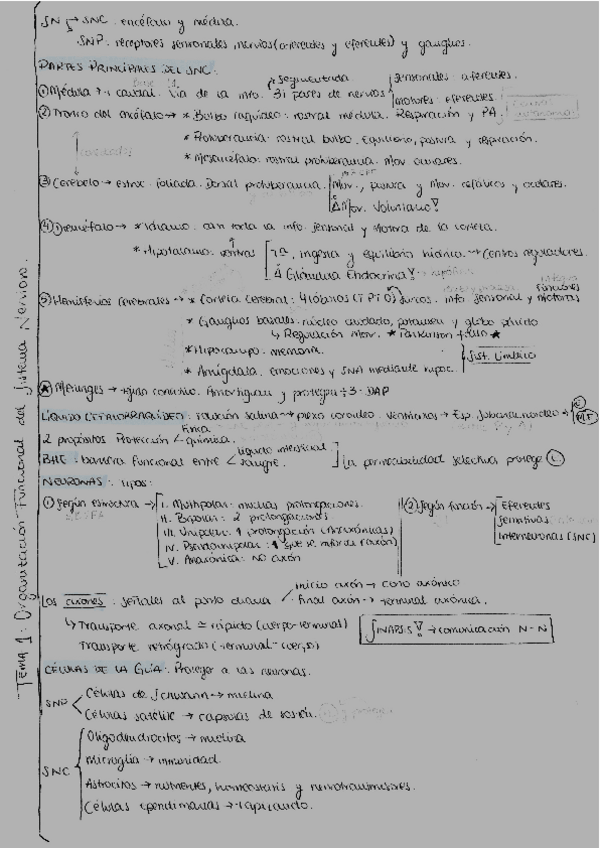 SN → SNC: encéfalo y médula.
SNP: receptores sensoriales, nervios (aferentes y eferentes) y ganglios.
PARTES PRINCIPALES DEL SNC:
① Médula → + caudal. Vía de la info. 31 pares de nervios
Segmentada
sensoriales: aferentes.
motores: eferentes
② Tronco del encéfalo → * Bulbo raquídeo: rostral médula. Respiración y PA.
* Protuberancia: rostral bulbo. Equilibrio, postura y respiración.
* Mesencéfalo: rostral protuberancia. Mov. oculares.
③ Cerebelo → estruc. foliada. Dorsal protuberancia.
Mov., postura y mov. cefálicos y oculares.
Mov. Voluntario!
④ Diencéfalo → * Tálamo: toda la info. sensorial y motora de la corteza.
* Hipotálamo: ventral
Tª, ingesta y equilibrio hídrico → Centros reguladores.
Glándula Endocrina!
⑤ Hemisferios cerebrales → * Corteza cerebral: 4 lóbulos (TPFO) surcos. info sensorial y
funciones motoras
* Ganglios basales: núcleo caudado, putamen y globo pálido
↳ Regulación mov. * Parkinson
* Hipocampo: memoria.
* Amígdala: emociones y SNA mediante hipot.
Sist. Límbico
Meninges → tejido conectivo. Amortiguan y protegen ÷3: DAP
LÍQUIDO CEFALORRAQUÍDEO: solución salina → plexo coroideo. Ventrículos → Esp. Subaracnoideo →
2 propósitos Protección < física
química.
BHE: barrera funcional entre < líquido intersticial
sangre.
La permeabilidad selectiva protege
NEURONAS: tipos:
① Según estructura →
I. Multipolar: muchas prolongaciones.
II. Bipolar: 2 prolongaciones
III. Unipolar: 1 prolongación
IV. Pseudounipolar: 1 que se (axón)
V. Anaxónica: NO axón
② Según función →
Eferentes
Sensitivas
Interneuronas (SNC)
Los axones: señales al punto diana
inicio axón → cono axónico
final axón → terminal axónica.
↳ Transporte axonal = rápido (cuerpo-terminal)
Transporte retrógrado (terminal-cuerpo)
SINAPSIS! → comunicación N - N
CÉLULAS DE LA GLÍA: Protegen a las neuronas.
SNP
Células de Schwann → mielina
Células satélite → cápsulas de sostén.
SNC
Oligodendrocitos → mielina
Microglía → inmunidad.
Astrocitos → nutrientes, homeostasis y neurotransmisores.
Células ependimarias → tapizando.
"TEMA 1: Organización Funcional del Sistema Nervioso.